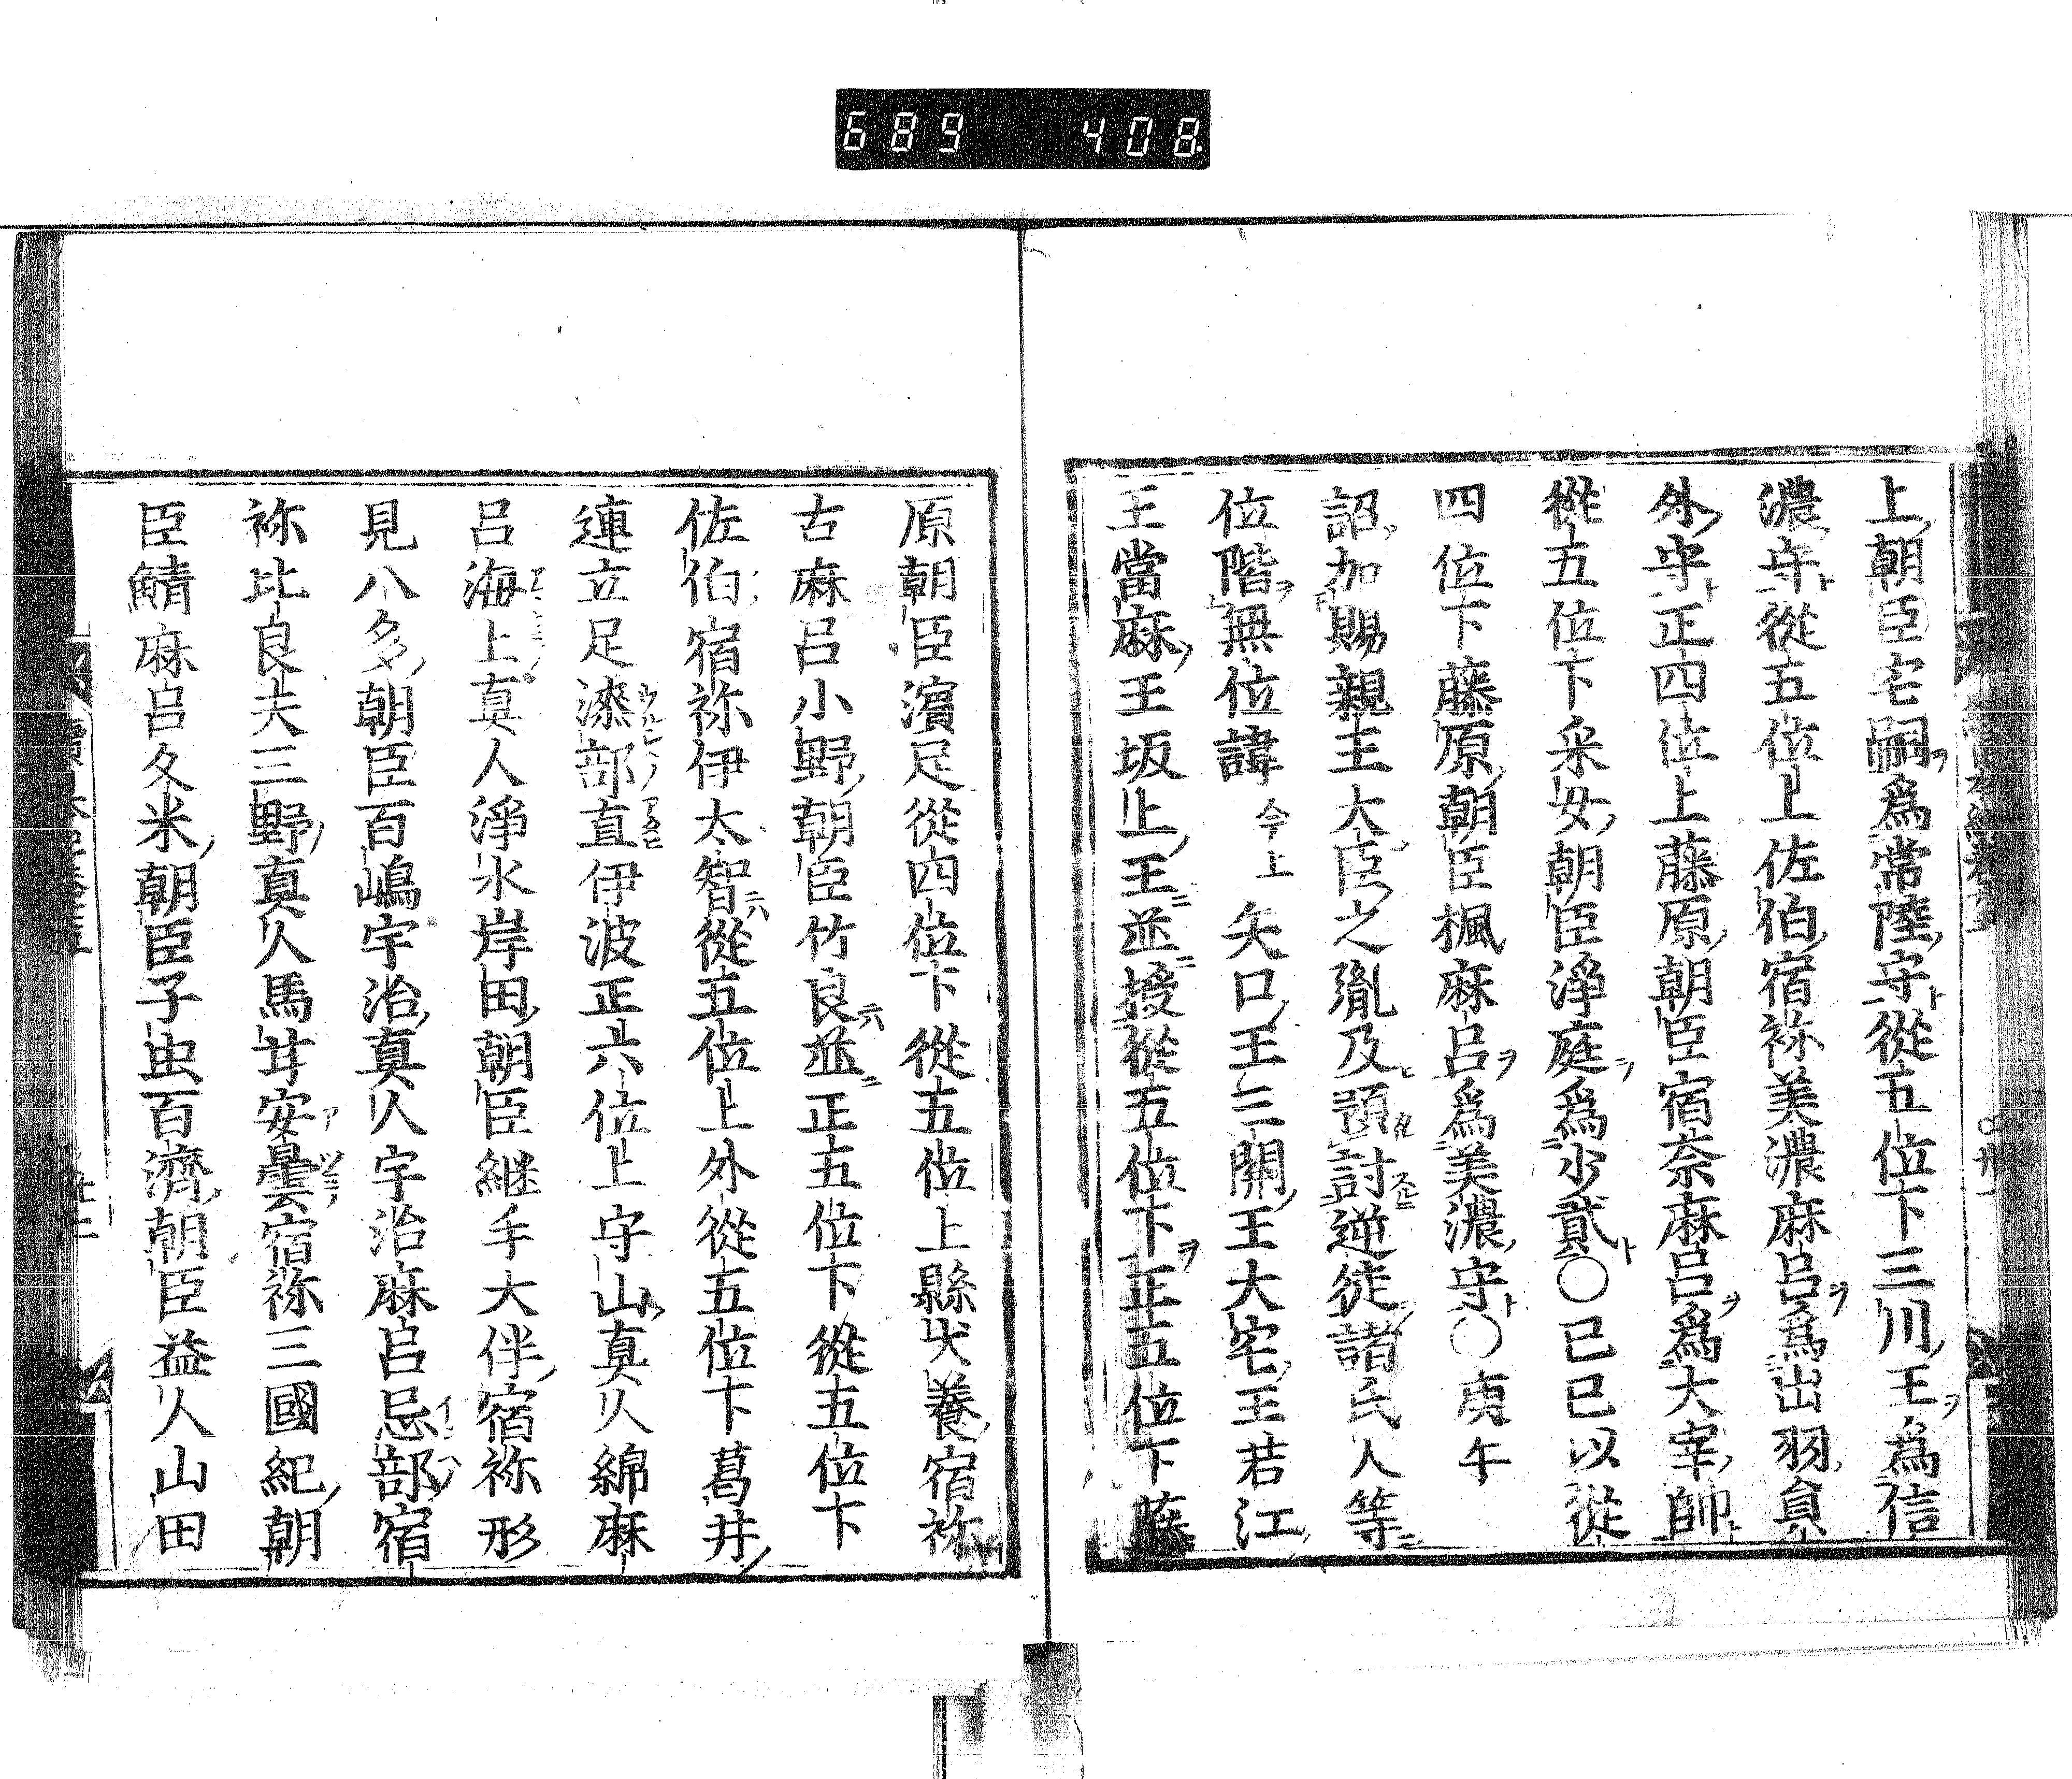 689 408
上朝臣宅嗣爲常陸守從五位下三川王爲信
濃守從五位上佐伯宿祢美濃麻呂爲出羽員
外守正四位上藤原朝臣宿奈麻呂爲大宰帥
從五位下采女朝臣淨庭爲少貳〇己巳以從
四位下藤原朝臣楓麻呂爲美濃守〇庚午
詔加賜親王大臣之胤及預討逆徒諸氏人等
位階無位諱今上矢口王三關王大宅王若江
王當麻王坂上王並授從五位下正五位下藤
原朝臣濵足從四位下從五位上縣犬養宿祢
古麻呂小野朝臣竹良並正五位下從五位下
佐伯宿祢伊太智從五位上外從五位下葛井
連立足漆部直伊波正六位上守山真人綿麻
呂海上真人淨水岸田朝臣継手大伴宿祢形
見八多朝臣百嶋宇治真人宇治麻呂忌部宿
祢比良夫三野真人馬甘安曇宿祢三國紀朝
臣鯖麻呂久米朝臣子虫百濟朝臣益人山田